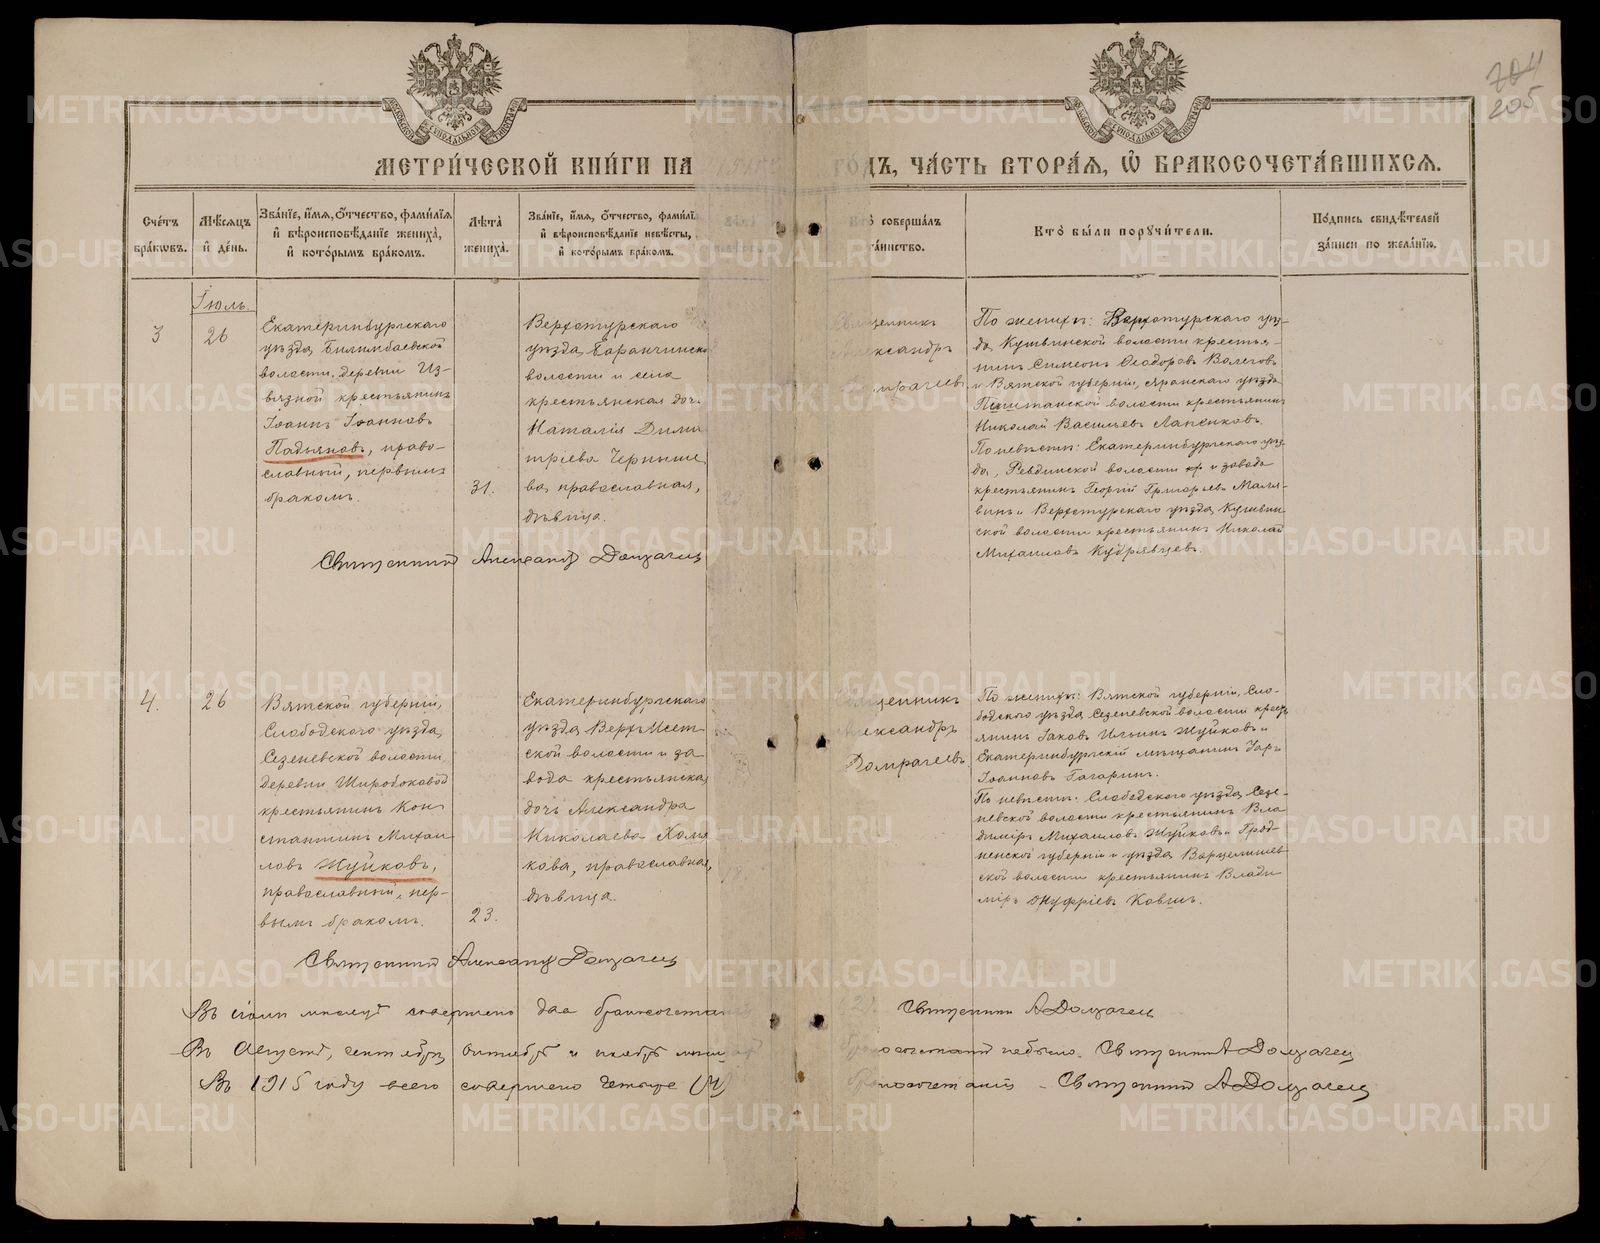 704
205
МОСКОВСКОЙ СѴНОДАЛЬНОЙ ТИПОГРАФІИ
МОСКОВСКОЙ СѴНОДАЛЬНОЙ ТИПОГРАФІИ
МЕТРИ́ЧЕСКОЙ КНИ́ГИ НА 1915 ГО́ДЪ, ЧА́СТЬ ВТОРА́Я, Ѽ БРАКОСОЧЕТА́ВШИХСЯ.
Сче́тъ бра́кωвъ.
Мѣ́сяцъ и҆ де́нь.
Зва́нїе, и҆́мя, ѻ҆́тчество, фами́лїя и҆ вѣроисповѣ́данїе жениха̀, и҆ кото́рымъ бра́комъ.
Лѣ́та жениха̀.
Зва́нїе, и҆́мя, ѻ҆́тчество, фами́лїя и҆ вѣроисповѣ́данїе невѣ́сты, и҆ кото́рымъ бра́комъ.
Кто̀ соверша́лъ та́инство.
Кто̀ бы́ли порꙋчи́тели.
По́дпись свидѣ́телей за́писи по жела́нїю.
Іюль.
3
26
Екатеринбургскаго
уѣзда, Билимбаевской
волости, деревни Из-
вязной крестьянинъ
Іоаннъ Іоанновъ
Падьяновъ, право-
славный, первымъ
бракомъ.
31.
Верхотурскаго
уѣзда, Баранчинской
волости и села
крестьянская дочь
Наталія Дими
тріева Чернише
ва, православная,
дѣвица.
Священникъ
Александръ
Домрачевъ
По женихѣ: Верхотурскаго уѣз-
да, Кушвинской волости крестья-
нинъ Симеонъ Ѳеодоровъ Волеговъ
и Вятской губерніи, Яранскаго уѣзда
Пиштанской волости крестьянинъ
Николай Васильевъ Лапсиковъ.
По невѣстѣ: Екатеринбургскаго уѣз-
да, Ревдинской волости и завода
крестьянинъ Георгій Григорьевъ Маля-
винъ и Верхотурскаго уѣзда, Кушвин-
ской волости крестьянинъ Николай
Михаиловъ Кудрявцевъ.
Священникъ Александръ Домрачевъ
4.
26
Вятской губерніи,
Слободского уѣзда,
Сезеневской волости,
деревни Широбоковой
крестьянинъ Кон
стантинъ Михаи
ловъ Жуйковъ,
православный, пер-
вымъ бракомъ.
23.
Екатеринбургскаго
уѣзда, Верхъ-Исет-
ской волости и за
вода крестьянская
дочь Александра
Николаева Хомя
кова, православная,
дѣвица.
18
Священникъ
Александръ
Домрачевъ.
По женихѣ: Вятской губерніи, Сло-
бодского уѣзда, Сезеневской волости крест-
янинъ Іаковъ Ильинъ Жуйковъ и
Екатеринбургскій мѣщанинъ
Іоанновъ Гагаринъ.
По невѣстѣ: Слободского уѣзда, Сезе-
невской волости крестьянинъ Вла
димиръ Михаиловъ Жуйковъ и Грод-
ненской губерніи и уѣзда, Верцелишев
ской волости крестьянинъ Влади
міръ Онуфріевъ Ковшъ.
Священникъ Александръ Домрачевъ
Въ іюлѣ мѣсяцѣ совершено два бракосочетанія (2). Священникъ А Домрачевъ
Въ Августѣ, сентябрѣ, октябрѣ и ноябрѣ мѣсяцахъ бракосочетаній небыло. Священникъ А Домрачевъ
Въ 1915 году всего совершено четыре (4) бракосочетанія – Священникъ А Домрачевъ
METRIKI.GASO-URAL.RU